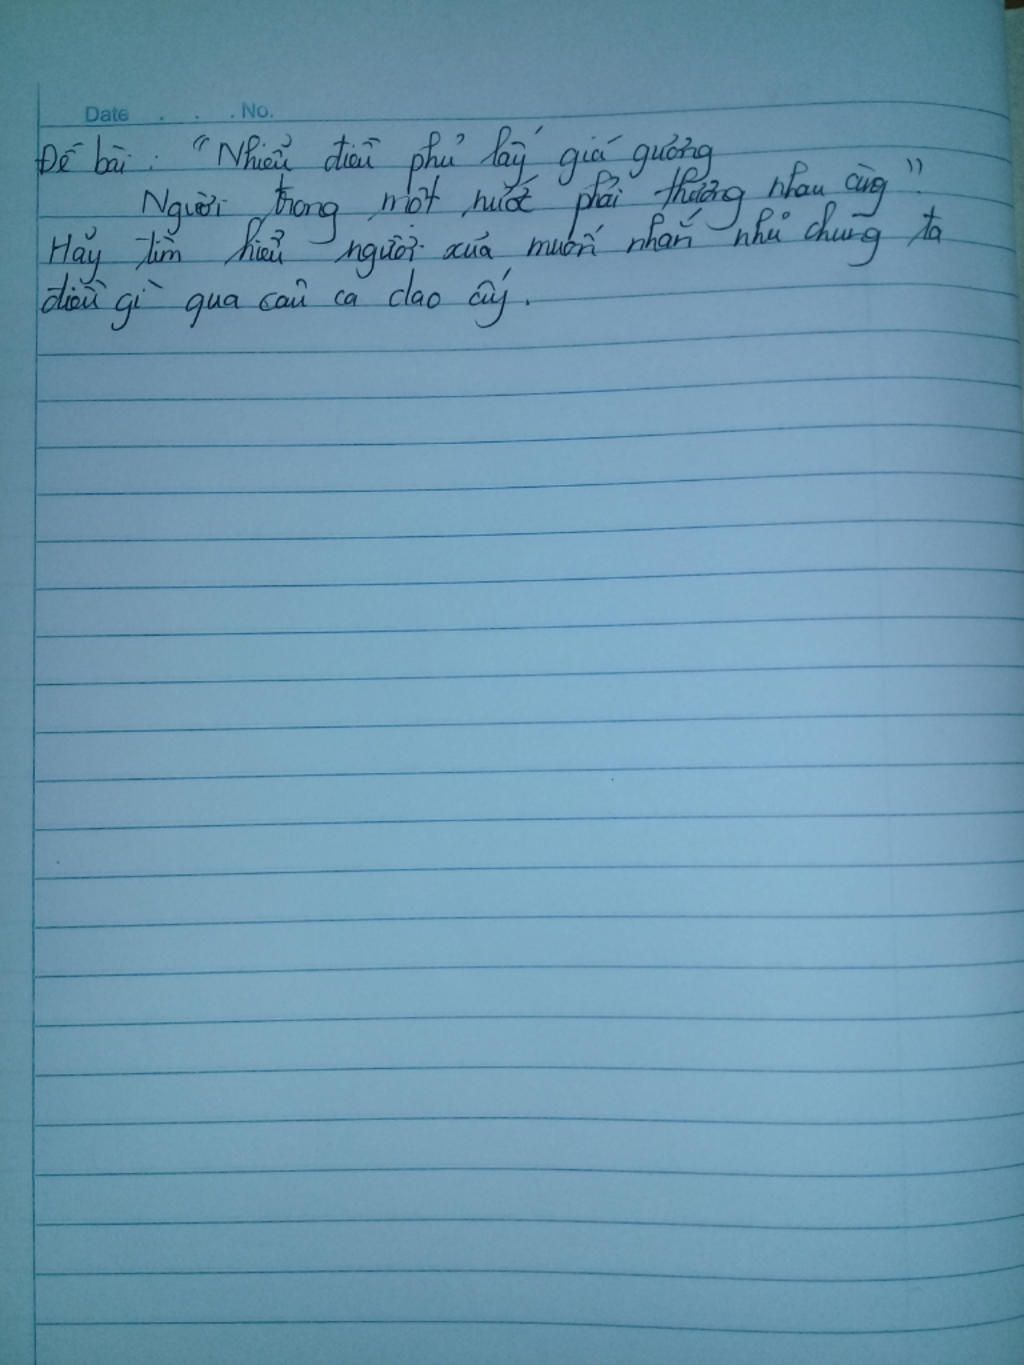 Date . . . No.
Đề bài : "Nhiễu điều phủ lấy giá gương
Người trong một nước phải thương nhau cùng".
Hãy tìm hiểu người xưa muốn nhắn nhủ chúng ta
điều gì qua câu ca dao ấy.